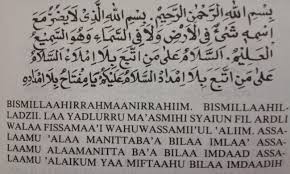 بِسْمِ اللهِ الرَّحْمٰنِ الرَّحِيْمِ. بِسْمِ اللهِ الَّذِيْ لَايَضُرُّ مَعَ
اِسْمِهِ شَيْءٌ فِي الْأَرْضِ وَلَا فِي السَّمَاءِ وَهُوَ السَّمِيْعُ
الْعَلِيْمُ. اَلسَّلَامُ عَلَى مَنِ اتَّبَعَ بِلَا اِمْلَاءِ السَّلَامُ
عَلَى مَنِ اتَّبَعَ بِلَا اِمْدَادِ السَّلَامُ عَلَيْكُمْ يَا مِفْتَاحُ بِلَا اِمْدَادِهِ
BISMILLAAHIRRAHMAANIRRAHIIM. BISMILLAAHIL-
LADZII. LAA YADLURRU MA'ASMIHI SYAIUN FIL ARDLI
WALAA FISSAMAA'I WAHUWASSAMII'UL 'ALIIM. ASSA-
LAAMU 'ALAA MANITTABA'A BILAA IMLAA' ASSA-
LAAMU ALAAMANITTA BA'A BILAA IMDAAD ASSA-
LAAMU 'ALAIKUM YAA MIFTAAHU BILAA IMDAADIH